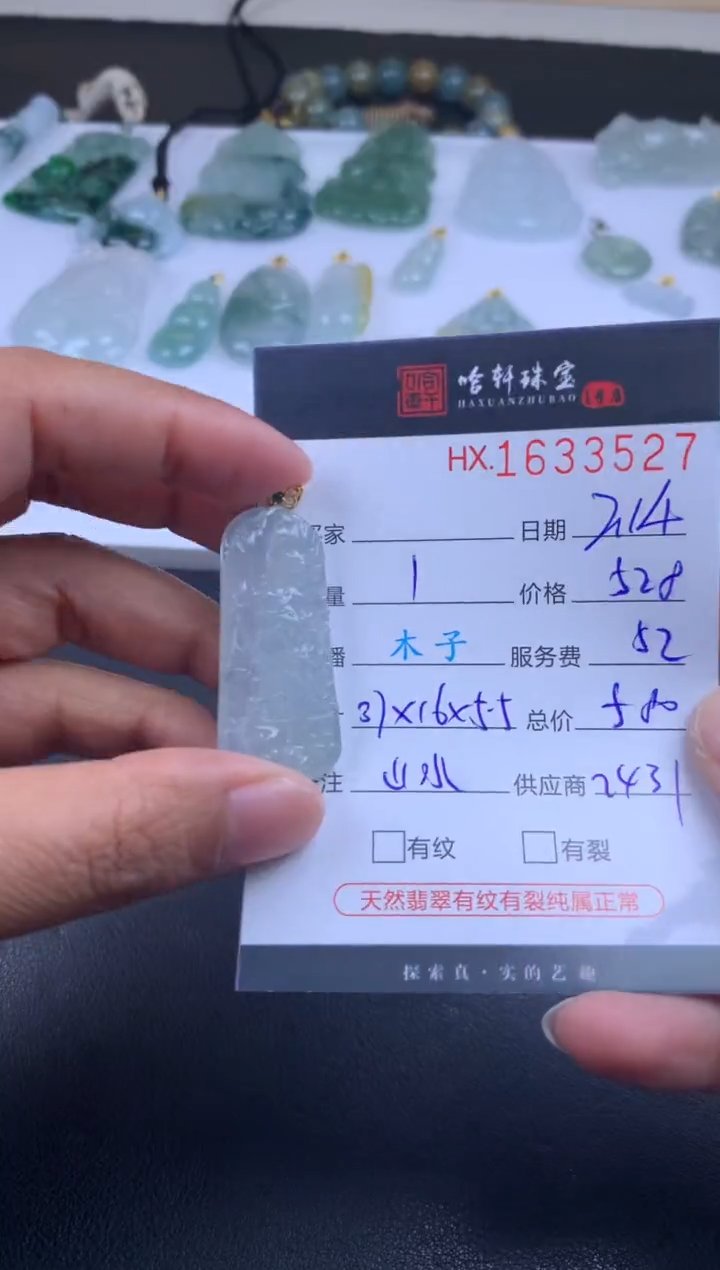 哈轩珠宝
HAXUANZHUBAO
HX.1633527
家 日期 214
量 1 价格 528
播 木子 服务费 52
37×16×5.5 总价 580
注 山水 供应商 2431
有纹 有裂
天然翡翠有纹有裂纯属正常
探索真·实的艺趣